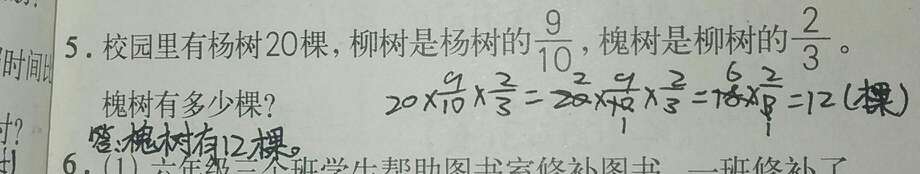 时间比
5.校园里有杨树20棵,柳树是杨树的9/10,槐树是柳树的2/3。
槐树有多少棵?
20×9/10×2/3=20×9/10×2/3=18×2/3=12(棵)
答:槐树有12棵。
6.(1)六年级三个班学生帮助图书室修补图书,一班修补了